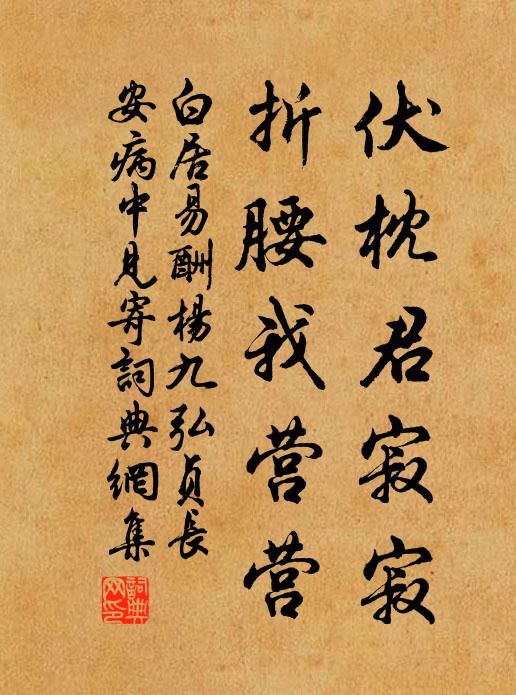 伏枕君寂寂
折腰我营营
白居易酬楊九弘貞長
安病中見寄詞典網集
詞典網印